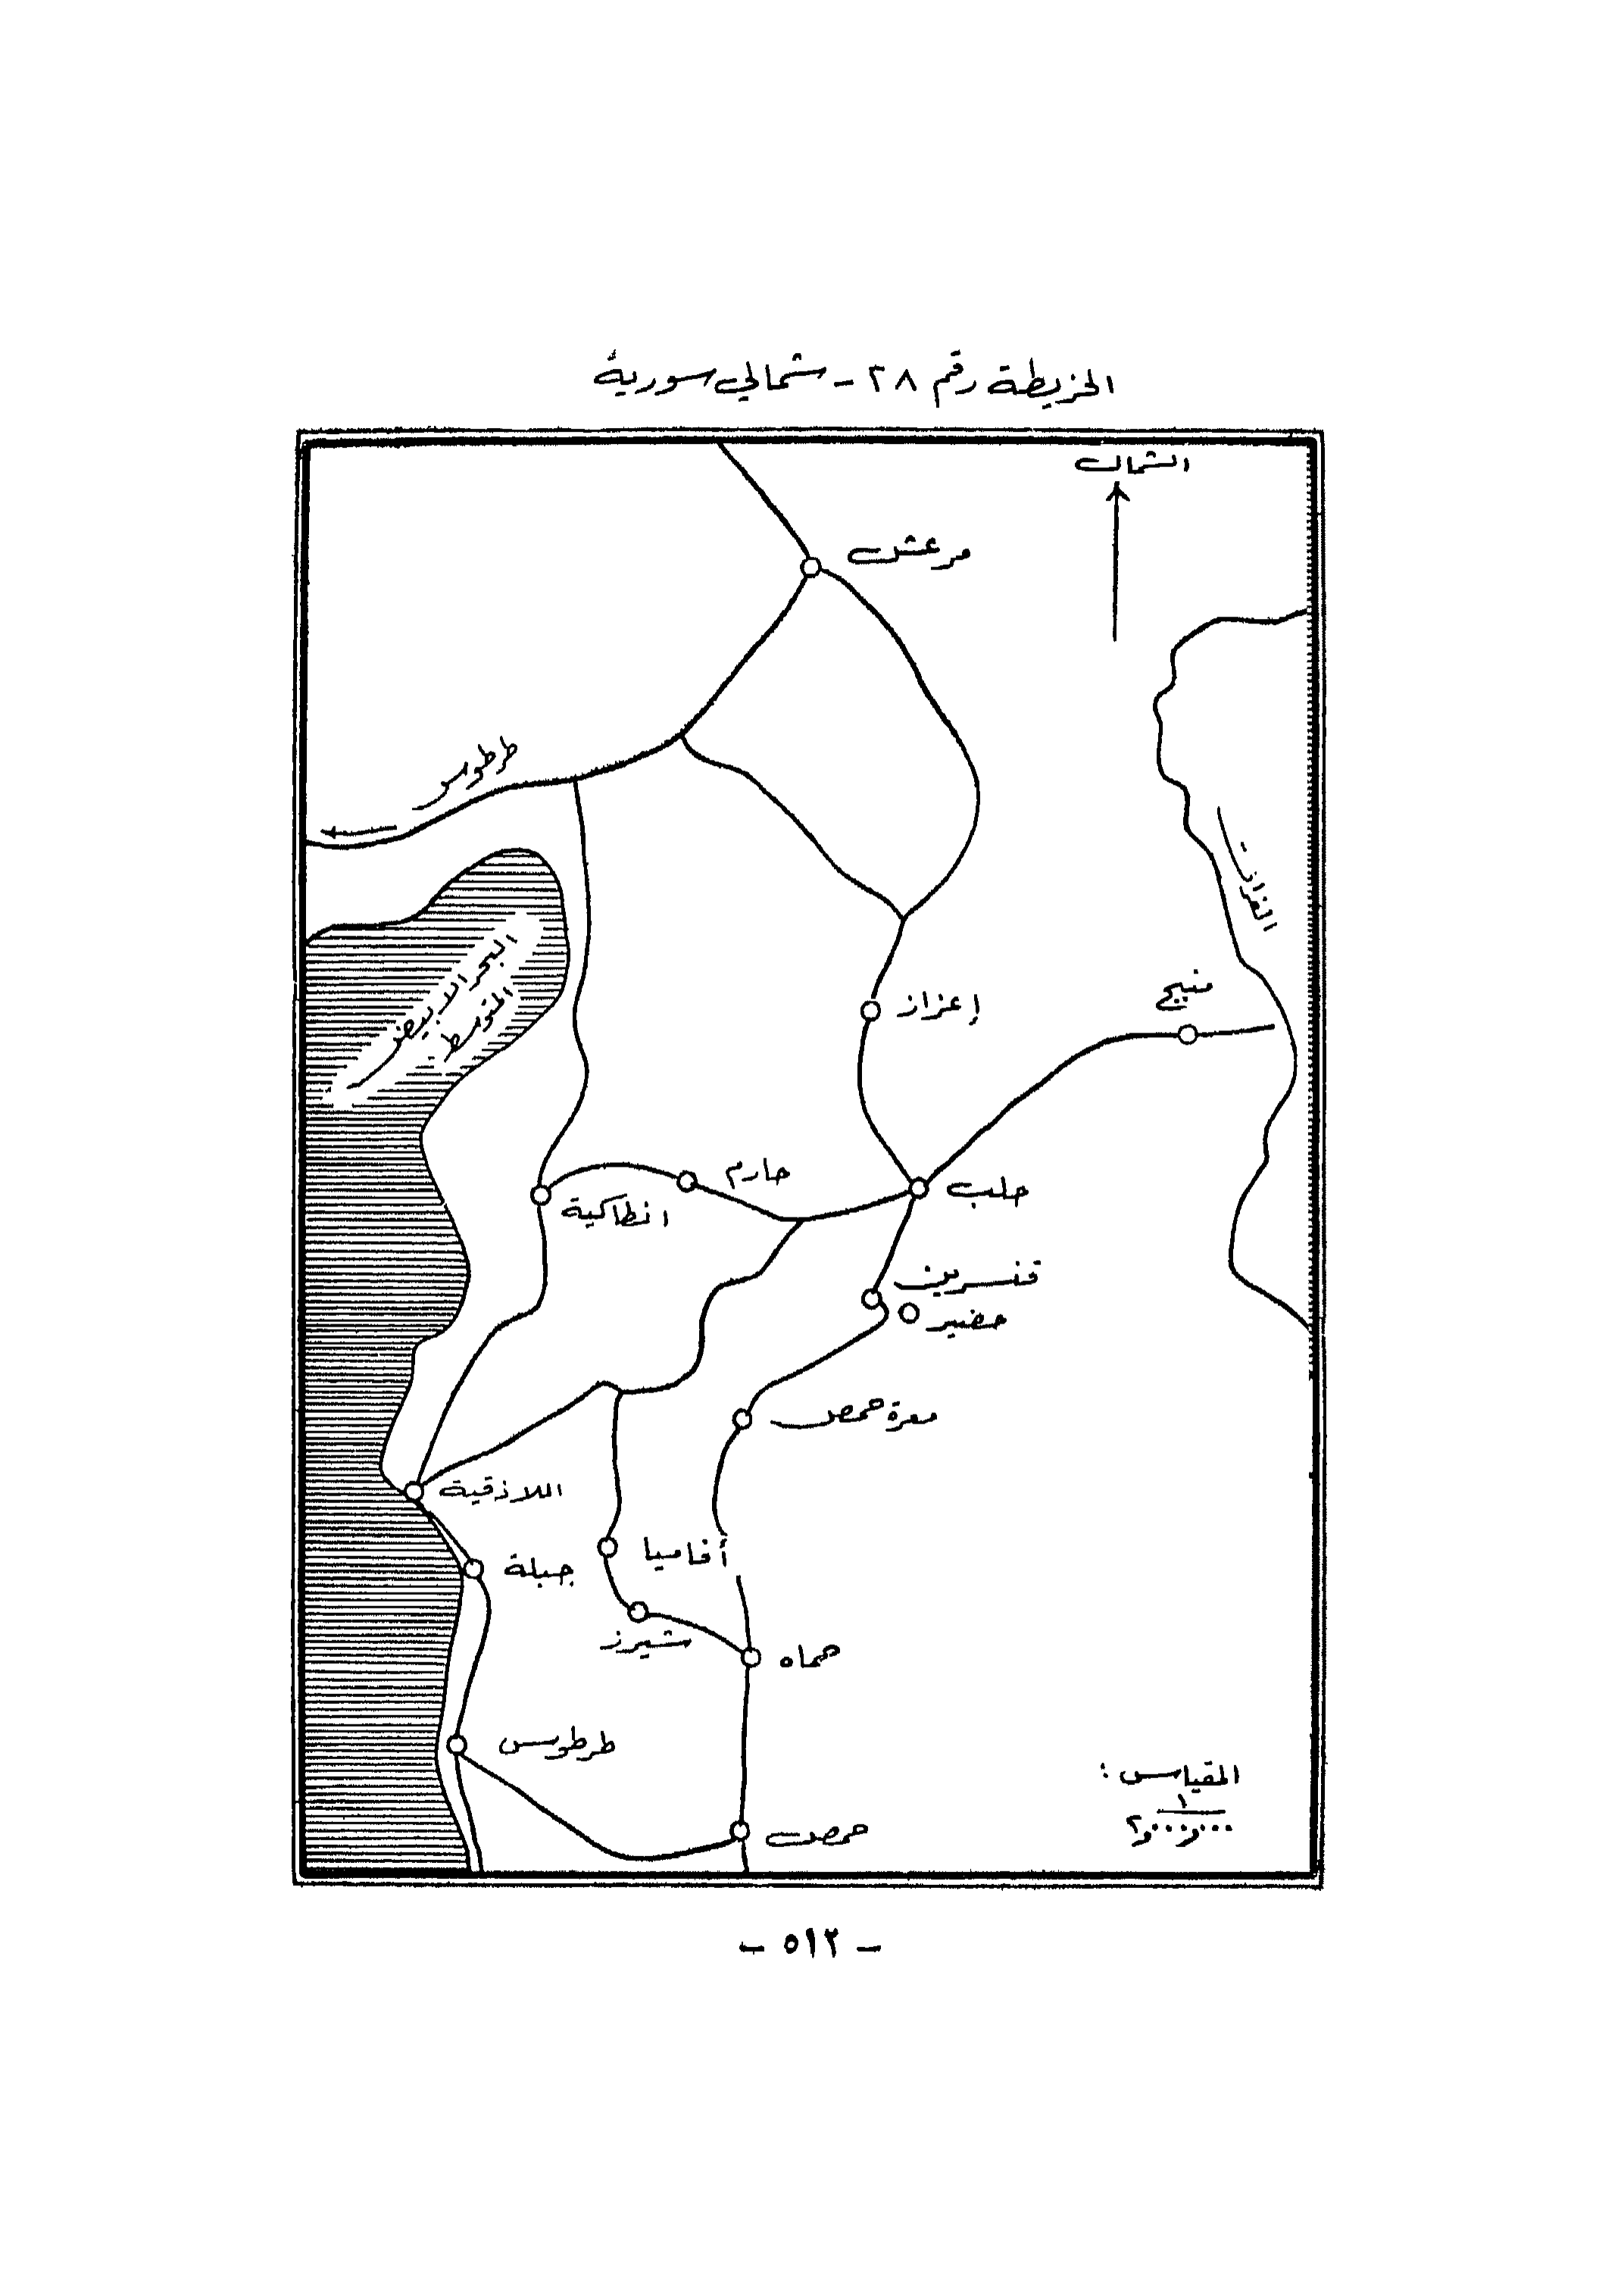 الخريطة رقم ٢٨ - شمالي سورية
الشمال
مرعش
طرطوس
الفرات
البحر الابيض
المتوسط
منبج
إعزاز
حارم
حلب
انطاكية
قنسرين
حضير
معرة حمص
اللاذقية
أفاميا
جبلة
شيرز
حماه
طرطوس
المقياس :
١
٢٫٠٠٠٫٠٠٠
حمص
- ٥١٢ -